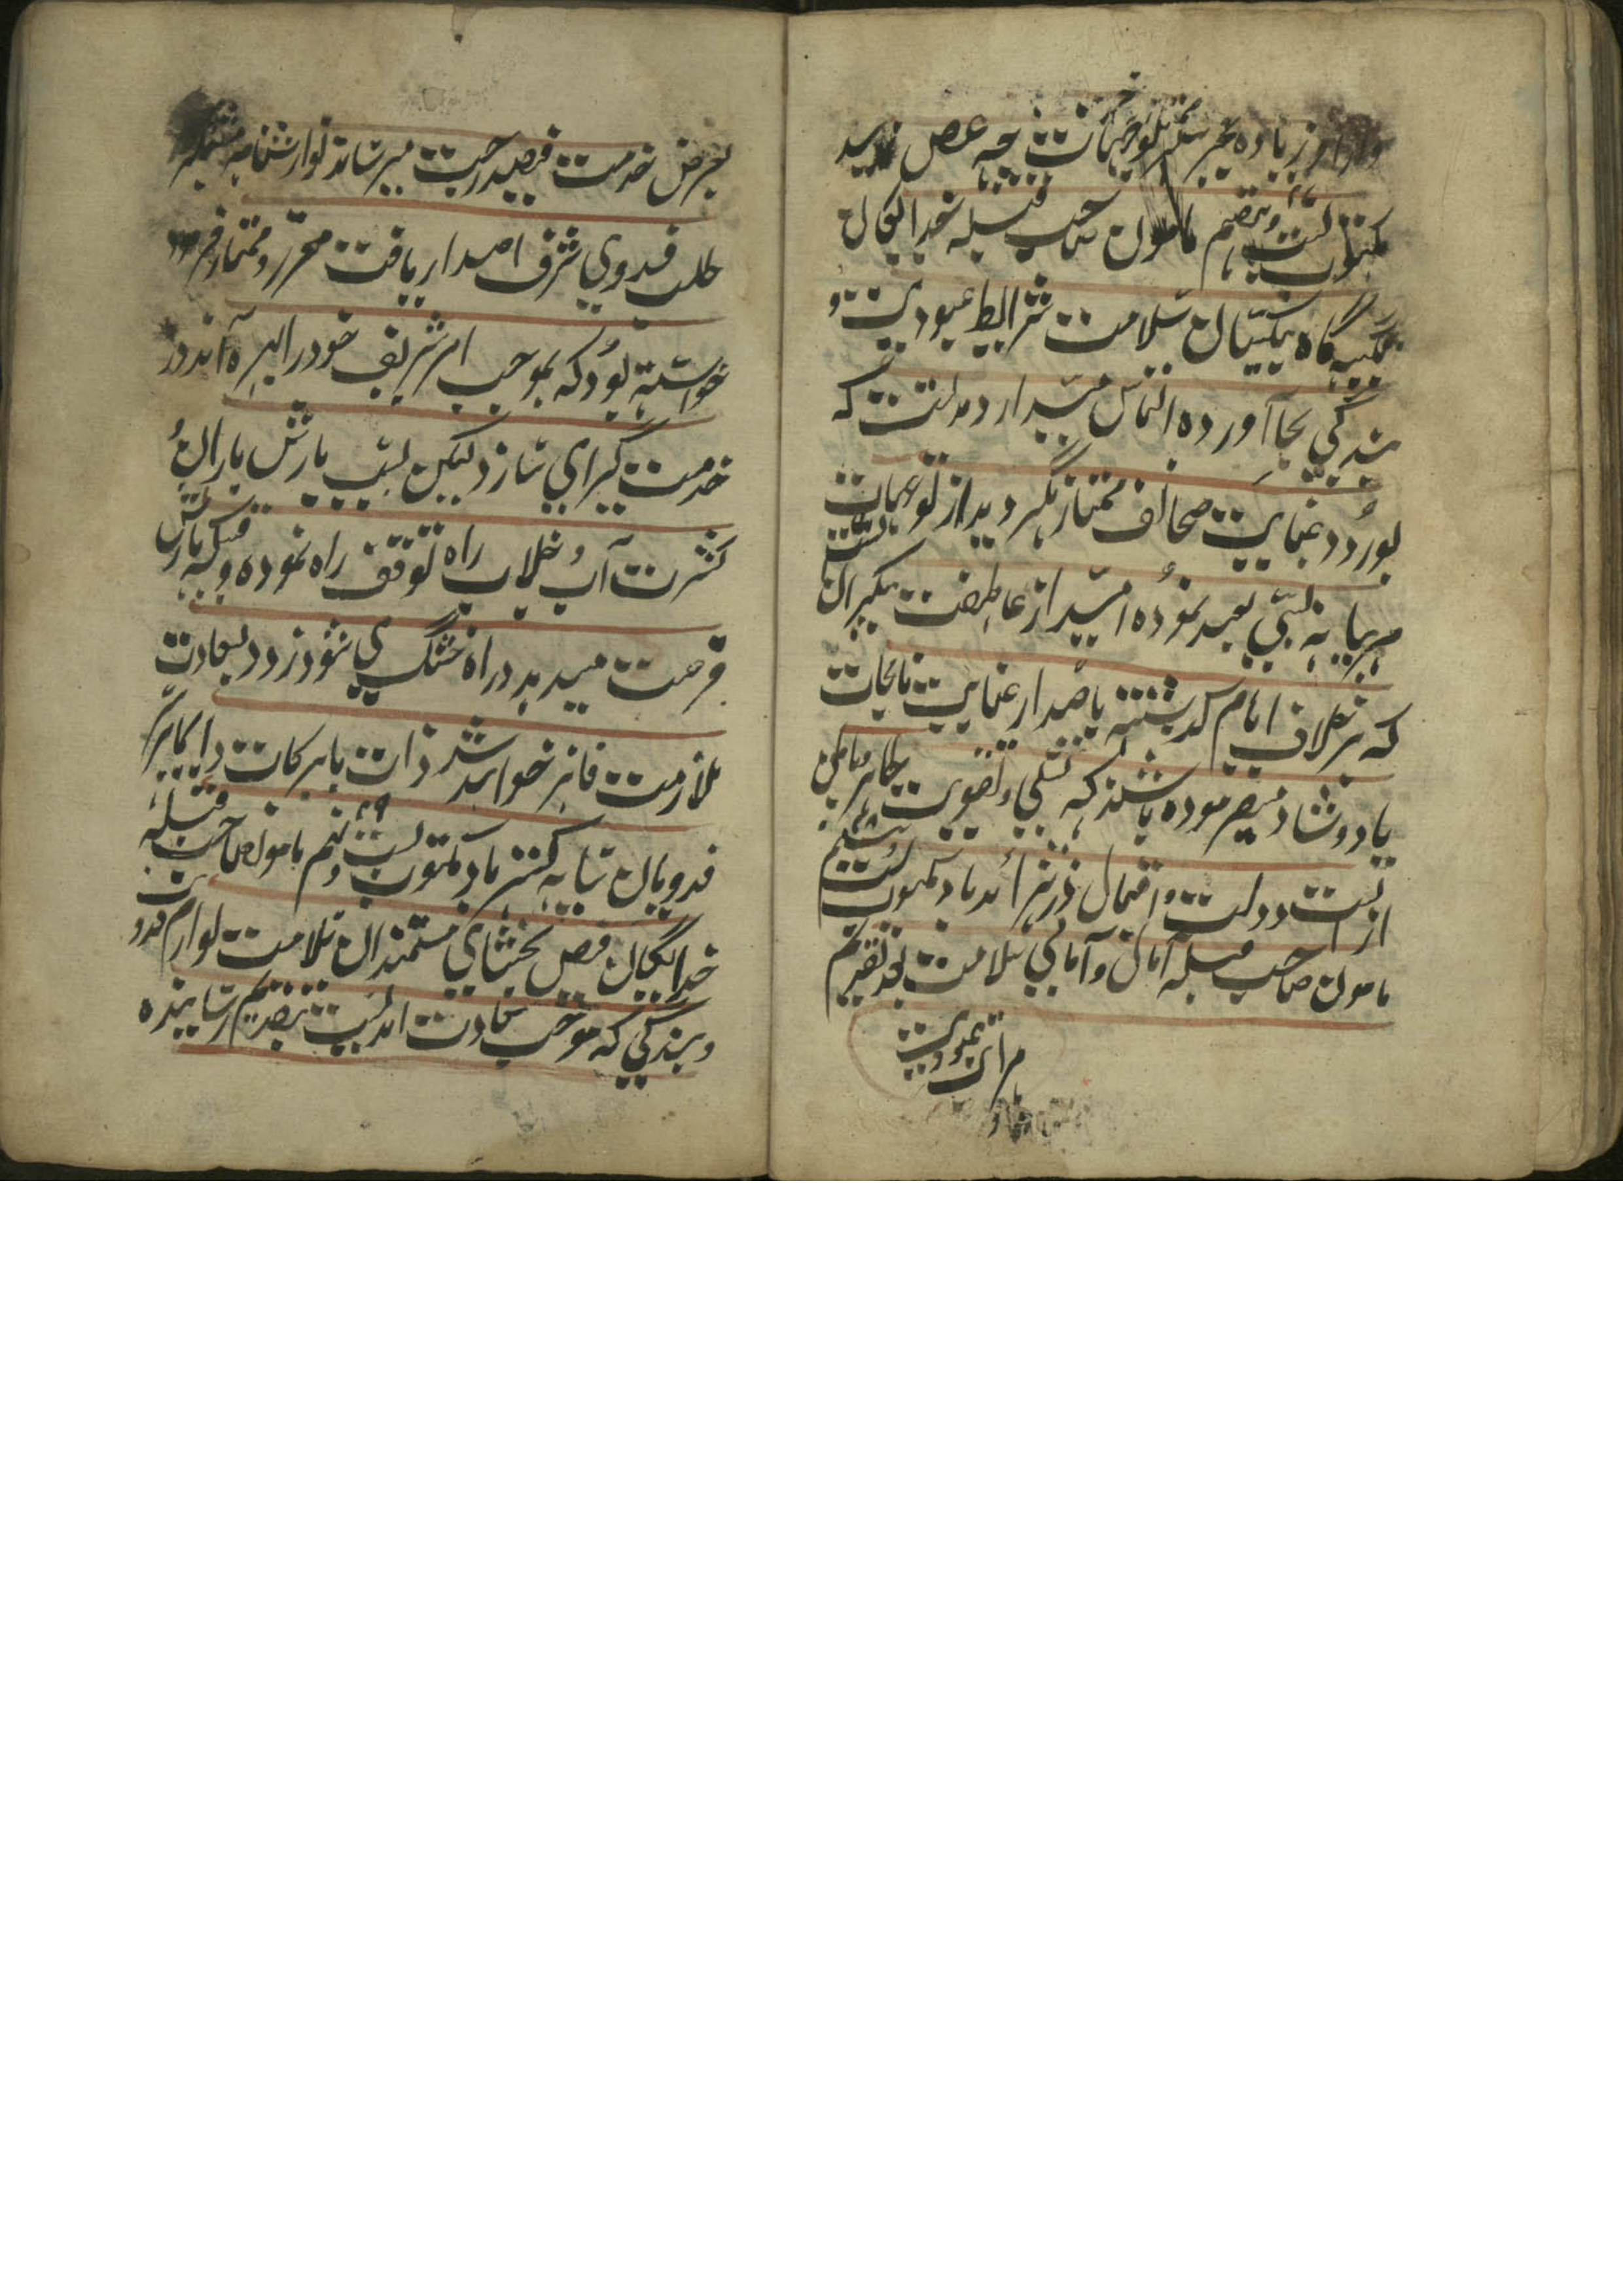 زیاده بجز چه عرض نماید
مکتوب بست و هفتم مامون صاحب قبله خدایگان
تکیه گاه بیکسان سلامت شرایط عبودیت و
بندگی بجا آورده التماس میدارد مدتست که
بورود عنایت صحائف ممتاز نگردید از توجهات
مربیانه بسی بعید نموده امید از عاطفت بیکران
که بر خلاف ایام گذشته باصدار عنایت نامجات
یاد و شاد میفرموده باشند که تسلی و تقویت خاطر
ازانست دولت و اقبال روز افزون باد مکتوب بست
مامون صاحب قبله آمال و امانی سلامت بعد تقدیم
مراتب عبودیت
بعرض خدمت فیضدرجت میرساند نوازشنامه مشتمل
طلب فدوی شرف اصدار یافت معزز و ممتاز فرمود
خواسته بود که بموجب امر شریف خود را بهره اندوز
خدمت گرامی سازد لیکن بسبب بارش باران و
کثرت آب و خلاب راه توقف راه نموده وقتیکه بارش
فرصت میدهد و راه خشک می شود زود بسعادت
ملازمت فائز خواهد شد ذات بابرکات دایما بر سر
فدویان سایه گستر باد مکتوب بست و نهم مامون صاحب قبله
خدایگان فیض بخشای مستمندان سلامت لوازم فدویت
و بندگی که موجب سعادت ابدیست بتقدیم رسانیده